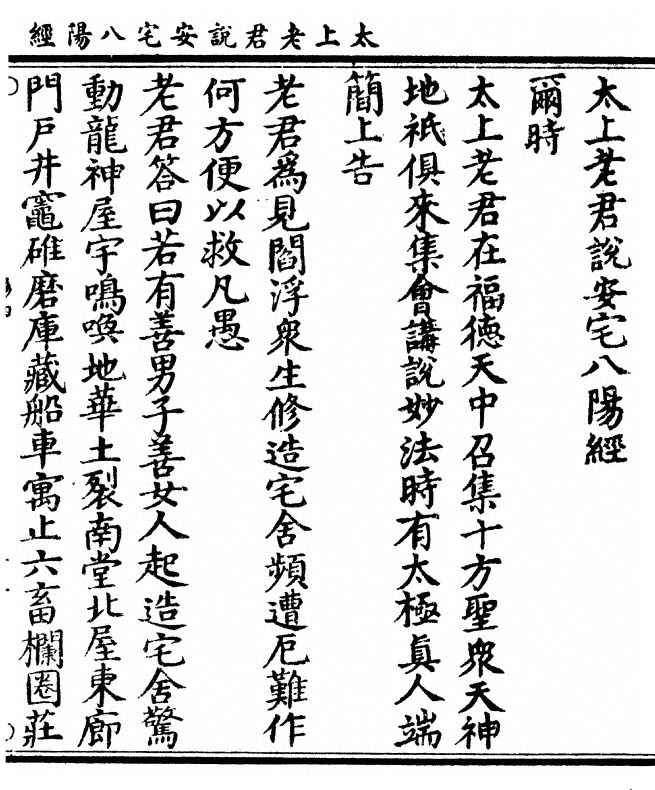 太上老君說安宅八陽經
太上老君說安宅八陽經
爾時
太上老君在福德天中召集十方聖衆天神
地祇俱來集會講說妙法時有太極真人端
簡上告
老君爲見閻浮衆生修造宅舍頻遭厄難作
何方便以救凡愚
老君答曰若有善男子善女人起造宅舍驚
動龍神屋宇鳴喚地華土裂南堂北屋東廊
門戶井竈碓磨庫藏船車寓止六畜欄圈莊